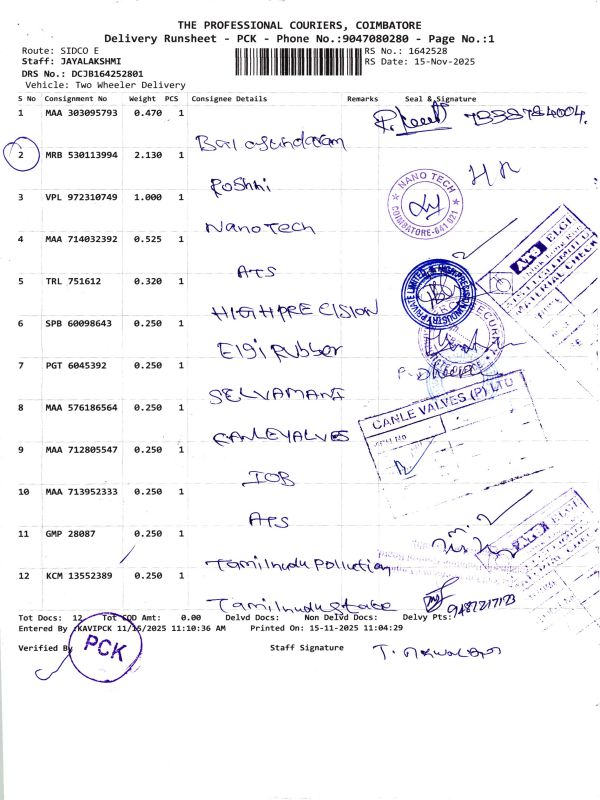 THE PROFESSIONAL COURIERS, COIMBATORE
Delivery Runsheet - PCK - Phone No.:9047080280 - Page No.:1
Route: SIDCO E
RS No.: 1642528
Staff: JAYALAKSHMI
RS Date: 15-Nov-2025
DRS No.: DCJB164252801
Vehicle: Two Wheeler Delivery
S No Consignment No Weight PCS Consignee Details Remarks Seal & Signature
1 MAA 303095793 0.470 1
Balasundaram
2 MRB 530113994 2.130 1
Roshni
HR
3 VPL 972310749 1.000 1
NANO TECH
COIMBATORE-641 021
NanoTech
4 MAA 714032392 0.525 1
ATS
5 TRL 751612 0.320 1
HIGHPRECISION
6 SPB 60098643 0.250 1
Elgi Rubber
7 PGT 6045392 0.250 1
SELVAMANI
8 MAA 576186564 0.250 1
CANLE VALVES (P) LTD
CANLEVALVES
9 MAA 712805547 0.250 1
IOB
10 MAA 713952333 0.250 1
ATS
11 GMP 28087 0.250 1
Tamilnadu Pollution
12 KCM 13552389 0.250 1
Tamilnadu state
Tot Docs: 12 Tot COD Amt: 0.00 Delvd Docs: Non Delvd Docs: Delvy Pts:
Entered By :KAVIPCK 11/15/2025 11:10:36 AM Printed On: 15-11-2025 11:04:29
Verified By
PCK
Staff Signature